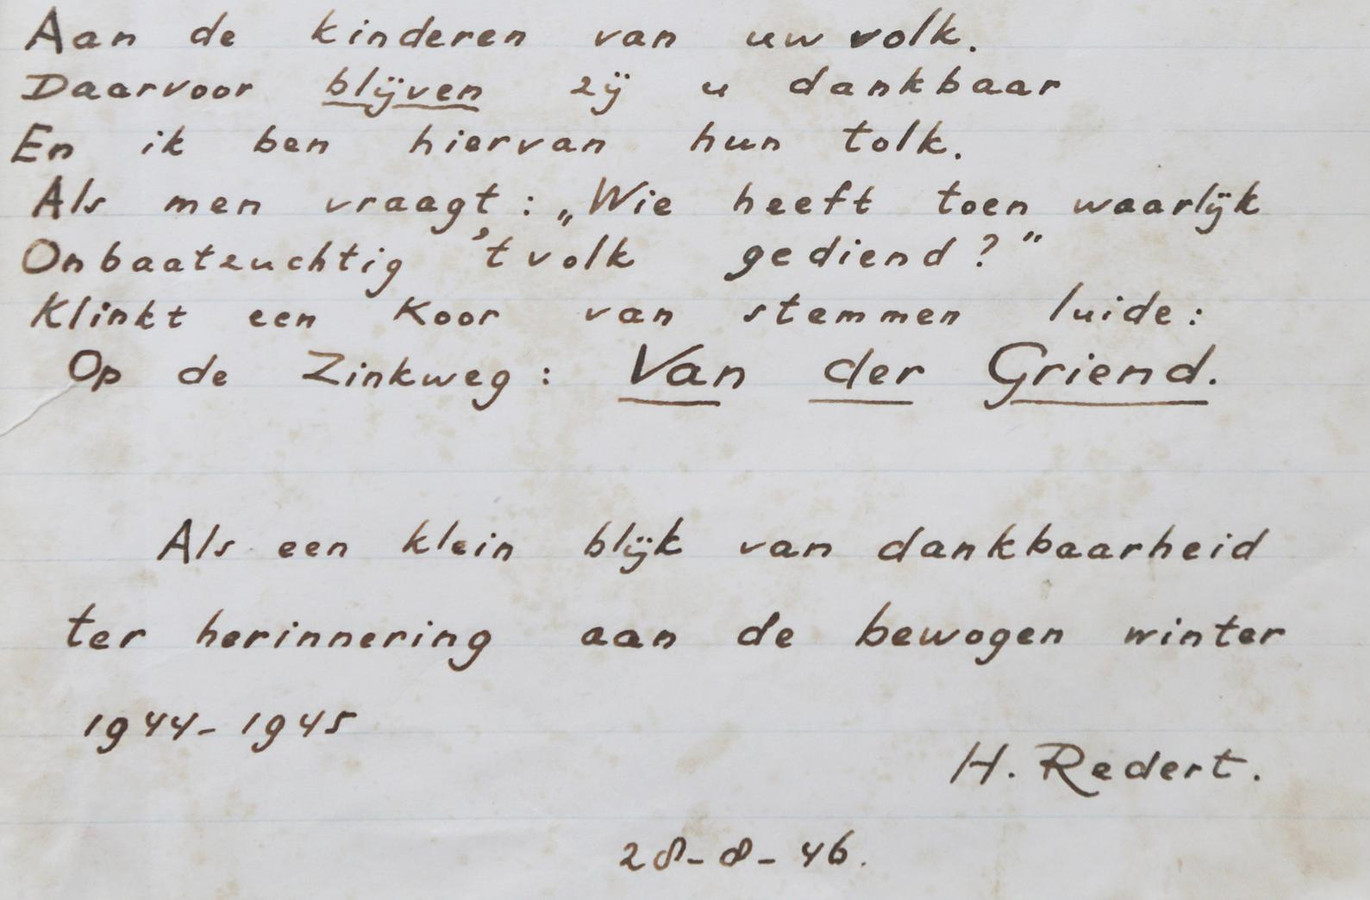 Aan de kinderen van uw volk.
Daarvoor blijven zij u dankbaar
En ik ben hiervan hun tolk.
Als men vraagt: „Wie heeft toen waarlijk
Onbaatzuchtig 't volk gediend?”
Klinkt een koor van stemmen luide:
Op de Zinkweg: Van der Griend.
Als een klein blijk van dankbaarheid
ter herinnering aan de bewogen winter
1944-1945
H. Redert.
28-8-46.